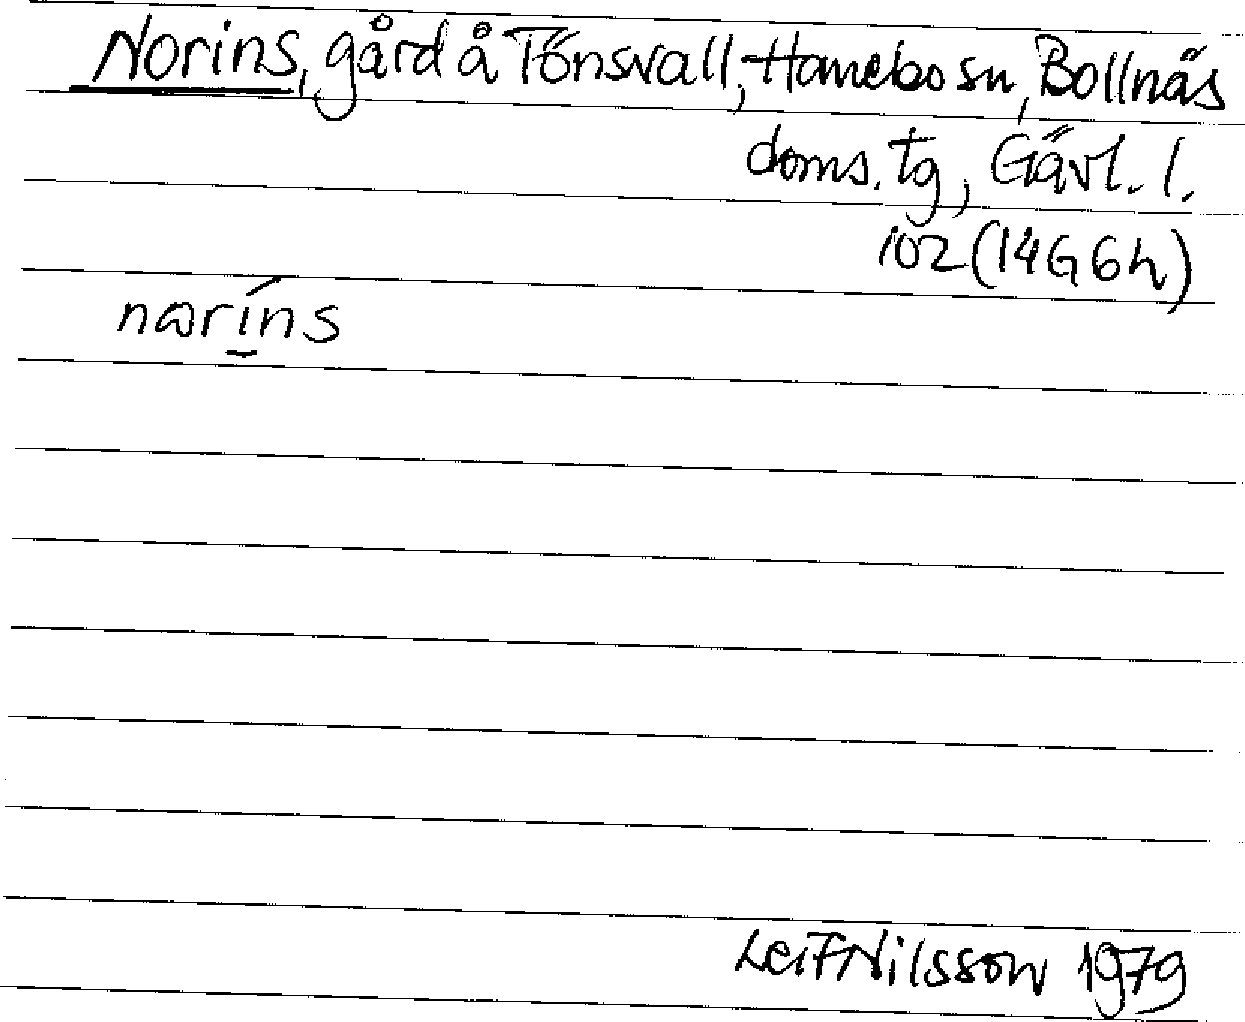 Norins, gård å Tönsvall, Hanebo sn, Bollnäs
doms. tg, Gävl. l.
102 (14G 6h)
narı̱́ns
Leif Nilsson 1979